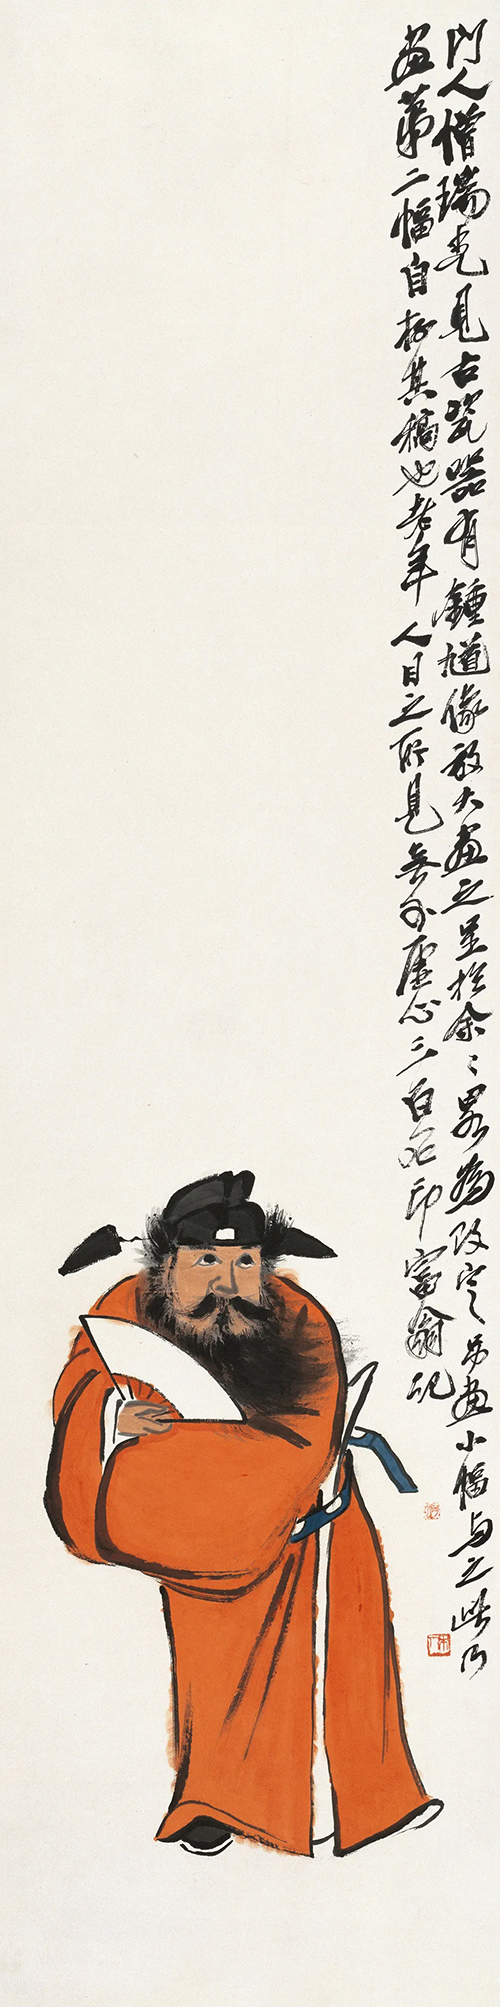 门人僧瑞光見古瓷器有鍾馗像放大畫之呈於余〻畧為改定另畫小幅與之此乃
畫第二幅自存其稿也老年人目之所見無不虛心三百石印富翁記